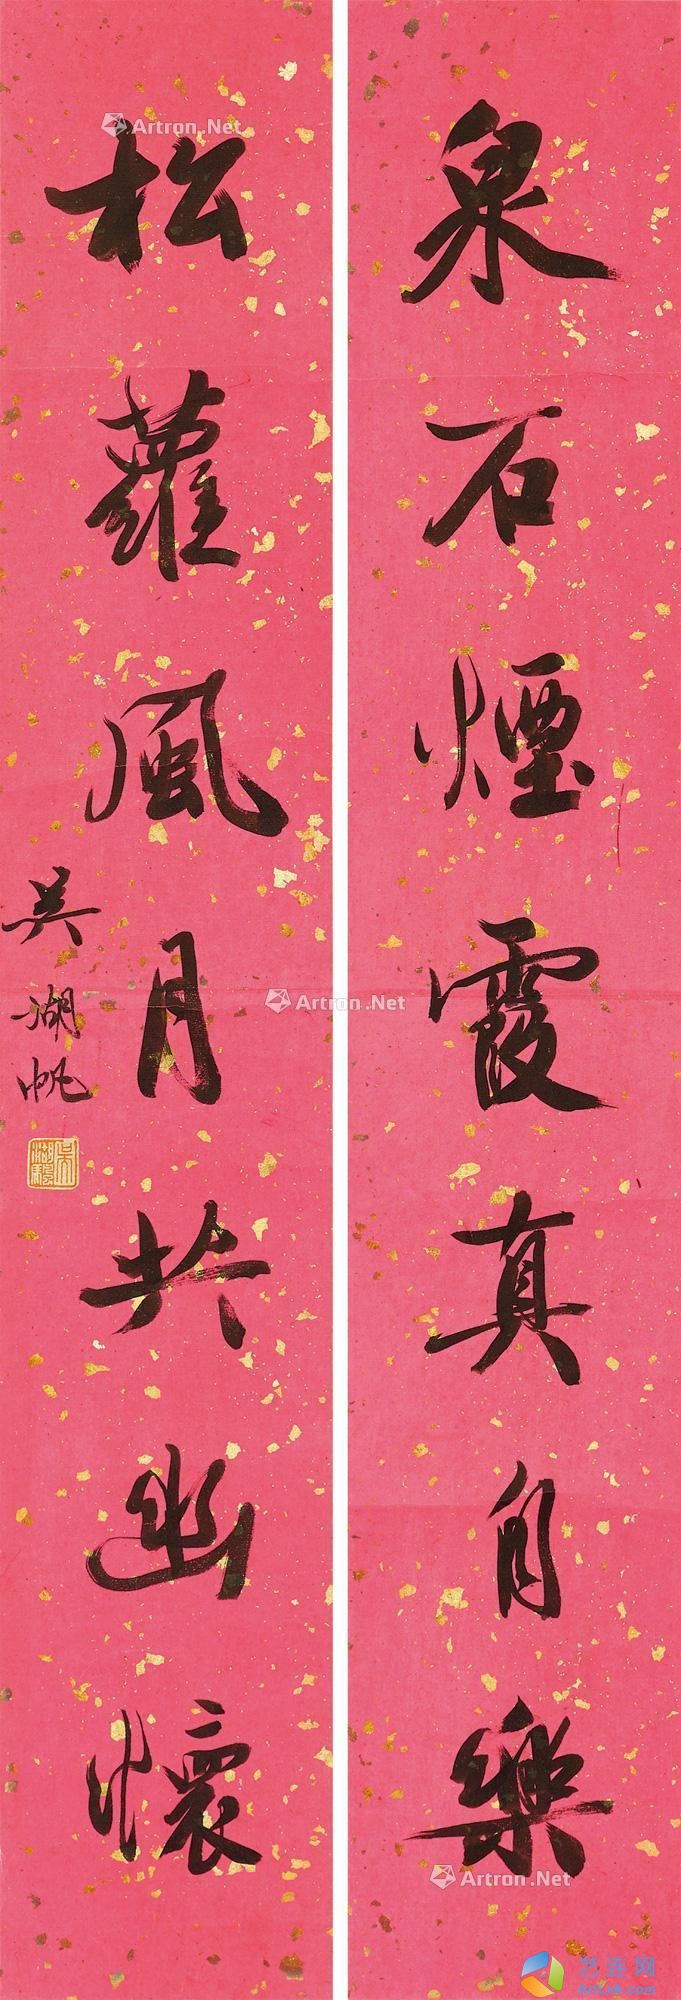 泉石煙霞真自樂
松蘿風月共幽懷
吳湖帆
Artron.Net
Artron.Net
Artron.Net
艺连网
ArtLink.com